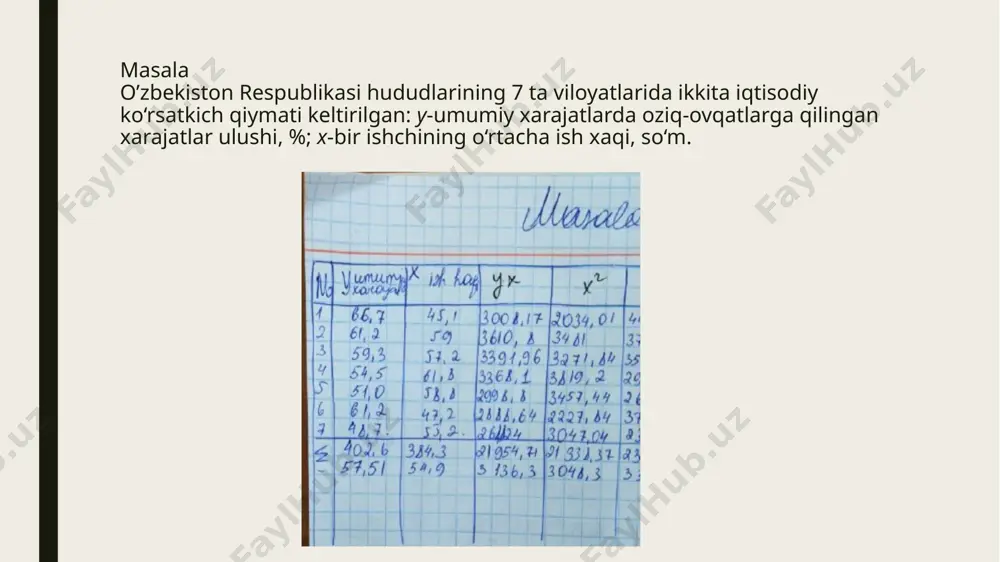 Masala
O’zbekiston Respublikasi hududlarining 7 ta viloyatlarida ikkita iqtisodiy
ko‘rsatkich qiymati keltirilgan: y-umumiy xarajatlarda oziq-ovqatlarga qilingan
xarajatlar ulushi, %; x-bir ishchining o‘rtacha ish xaqi, so‘m.
Masala
№ y umumiy xarajat x ish haqi yx x²
1 66,7 45,1 3008,17 2034,01
2 61,2 59 3610,8 3481
3 59,3 57,2 3391,96 3271,84 35
4 54,5 61,8 3368,1 3819,2 29
5 51,0 58,8 2998,8 3457,44 26
6 61,2 47,2 2888,64 2227,84 37
7 48,7 55,2 3047,04
Σ 402,6 384,3 21954,71 21338,37 23
57,51 54,9 3136,3 3048,3
FaylHub.uz
FaylHub.uz
FaylHub.uz
FaylHub.uz
FaylHub.uz